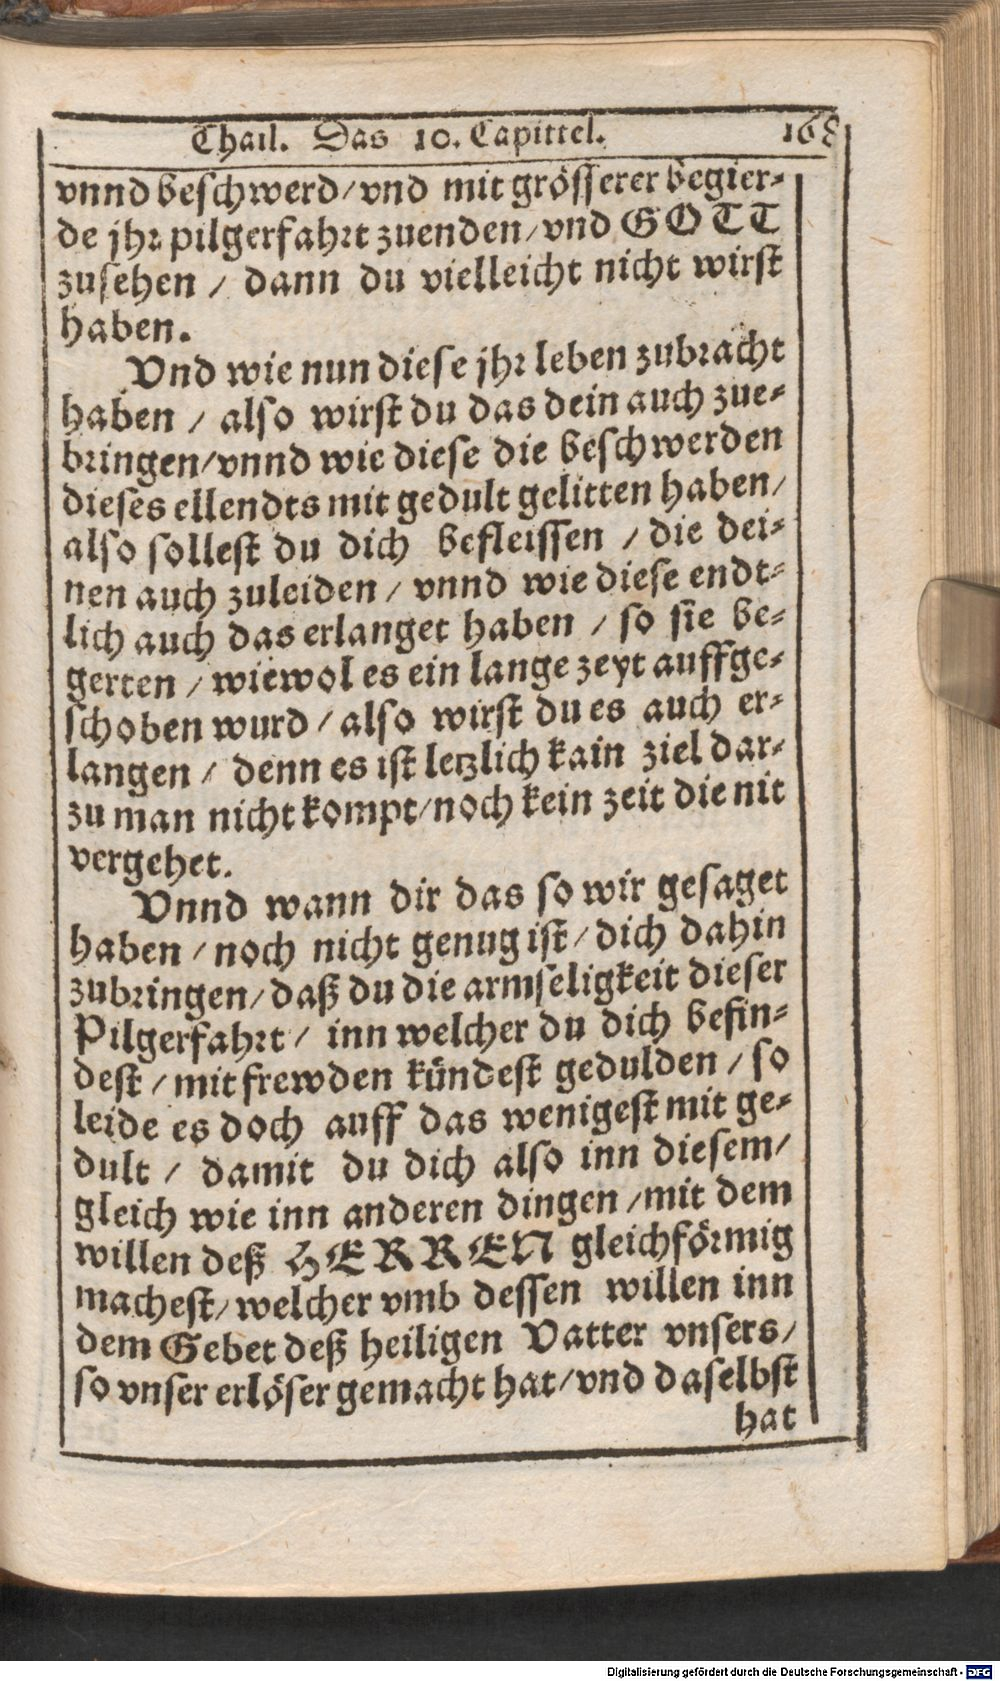 Thail. Das 10. Capittel. 168
vnnd beschwerd/vnd mit grösserer begier-
de jhr pilgerfahrt zuenden/vnd GOTT
zusehen / dann du vielleicht nicht wirst
haben.
Vnd wie nun diese jhr leben zubracht
haben / also wirst du das dein auch zue-
bringen/vnnd wie diese die beschwerden
dieses ellendts mit gedult gelitten haben/
also sollest du dich befleissen / die dei-
nen auch zuleiden / vnnd wie diese endt-
lich auch das erlanget haben / so sie be-
gerten / wiewol es ein lange zeyt auffge-
schoben wurd / also wirst du es auch er-
langen / denn es ist letzlich kain ziel dar-
zu man nicht kompt/noch kein zeit die nit
vergehet.
Vnnd wann dir das so wir gesaget
haben / noch nicht genug ist / dich dahin
zubringen/daß du die armseligkeit dieser
Pilgerfahrt / inn welcher du dich befin-
dest / mit frewden kündest gedulden / so
leide es doch auff das wenigest mit ge-
dult / damit du dich also inn diesem/
gleich wie inn anderen dingen /mit dem
willen deß HERREN gleichförmig
machest/welcher vmb dessen willen inn
dem Gebet deß heiligen Vatter vnsers/
so vnser erlöser gemacht hat/vnd daselbst
hat
Digitalisierung gefördert durch die Deutsche Forschungsgemeinschaft - DFG